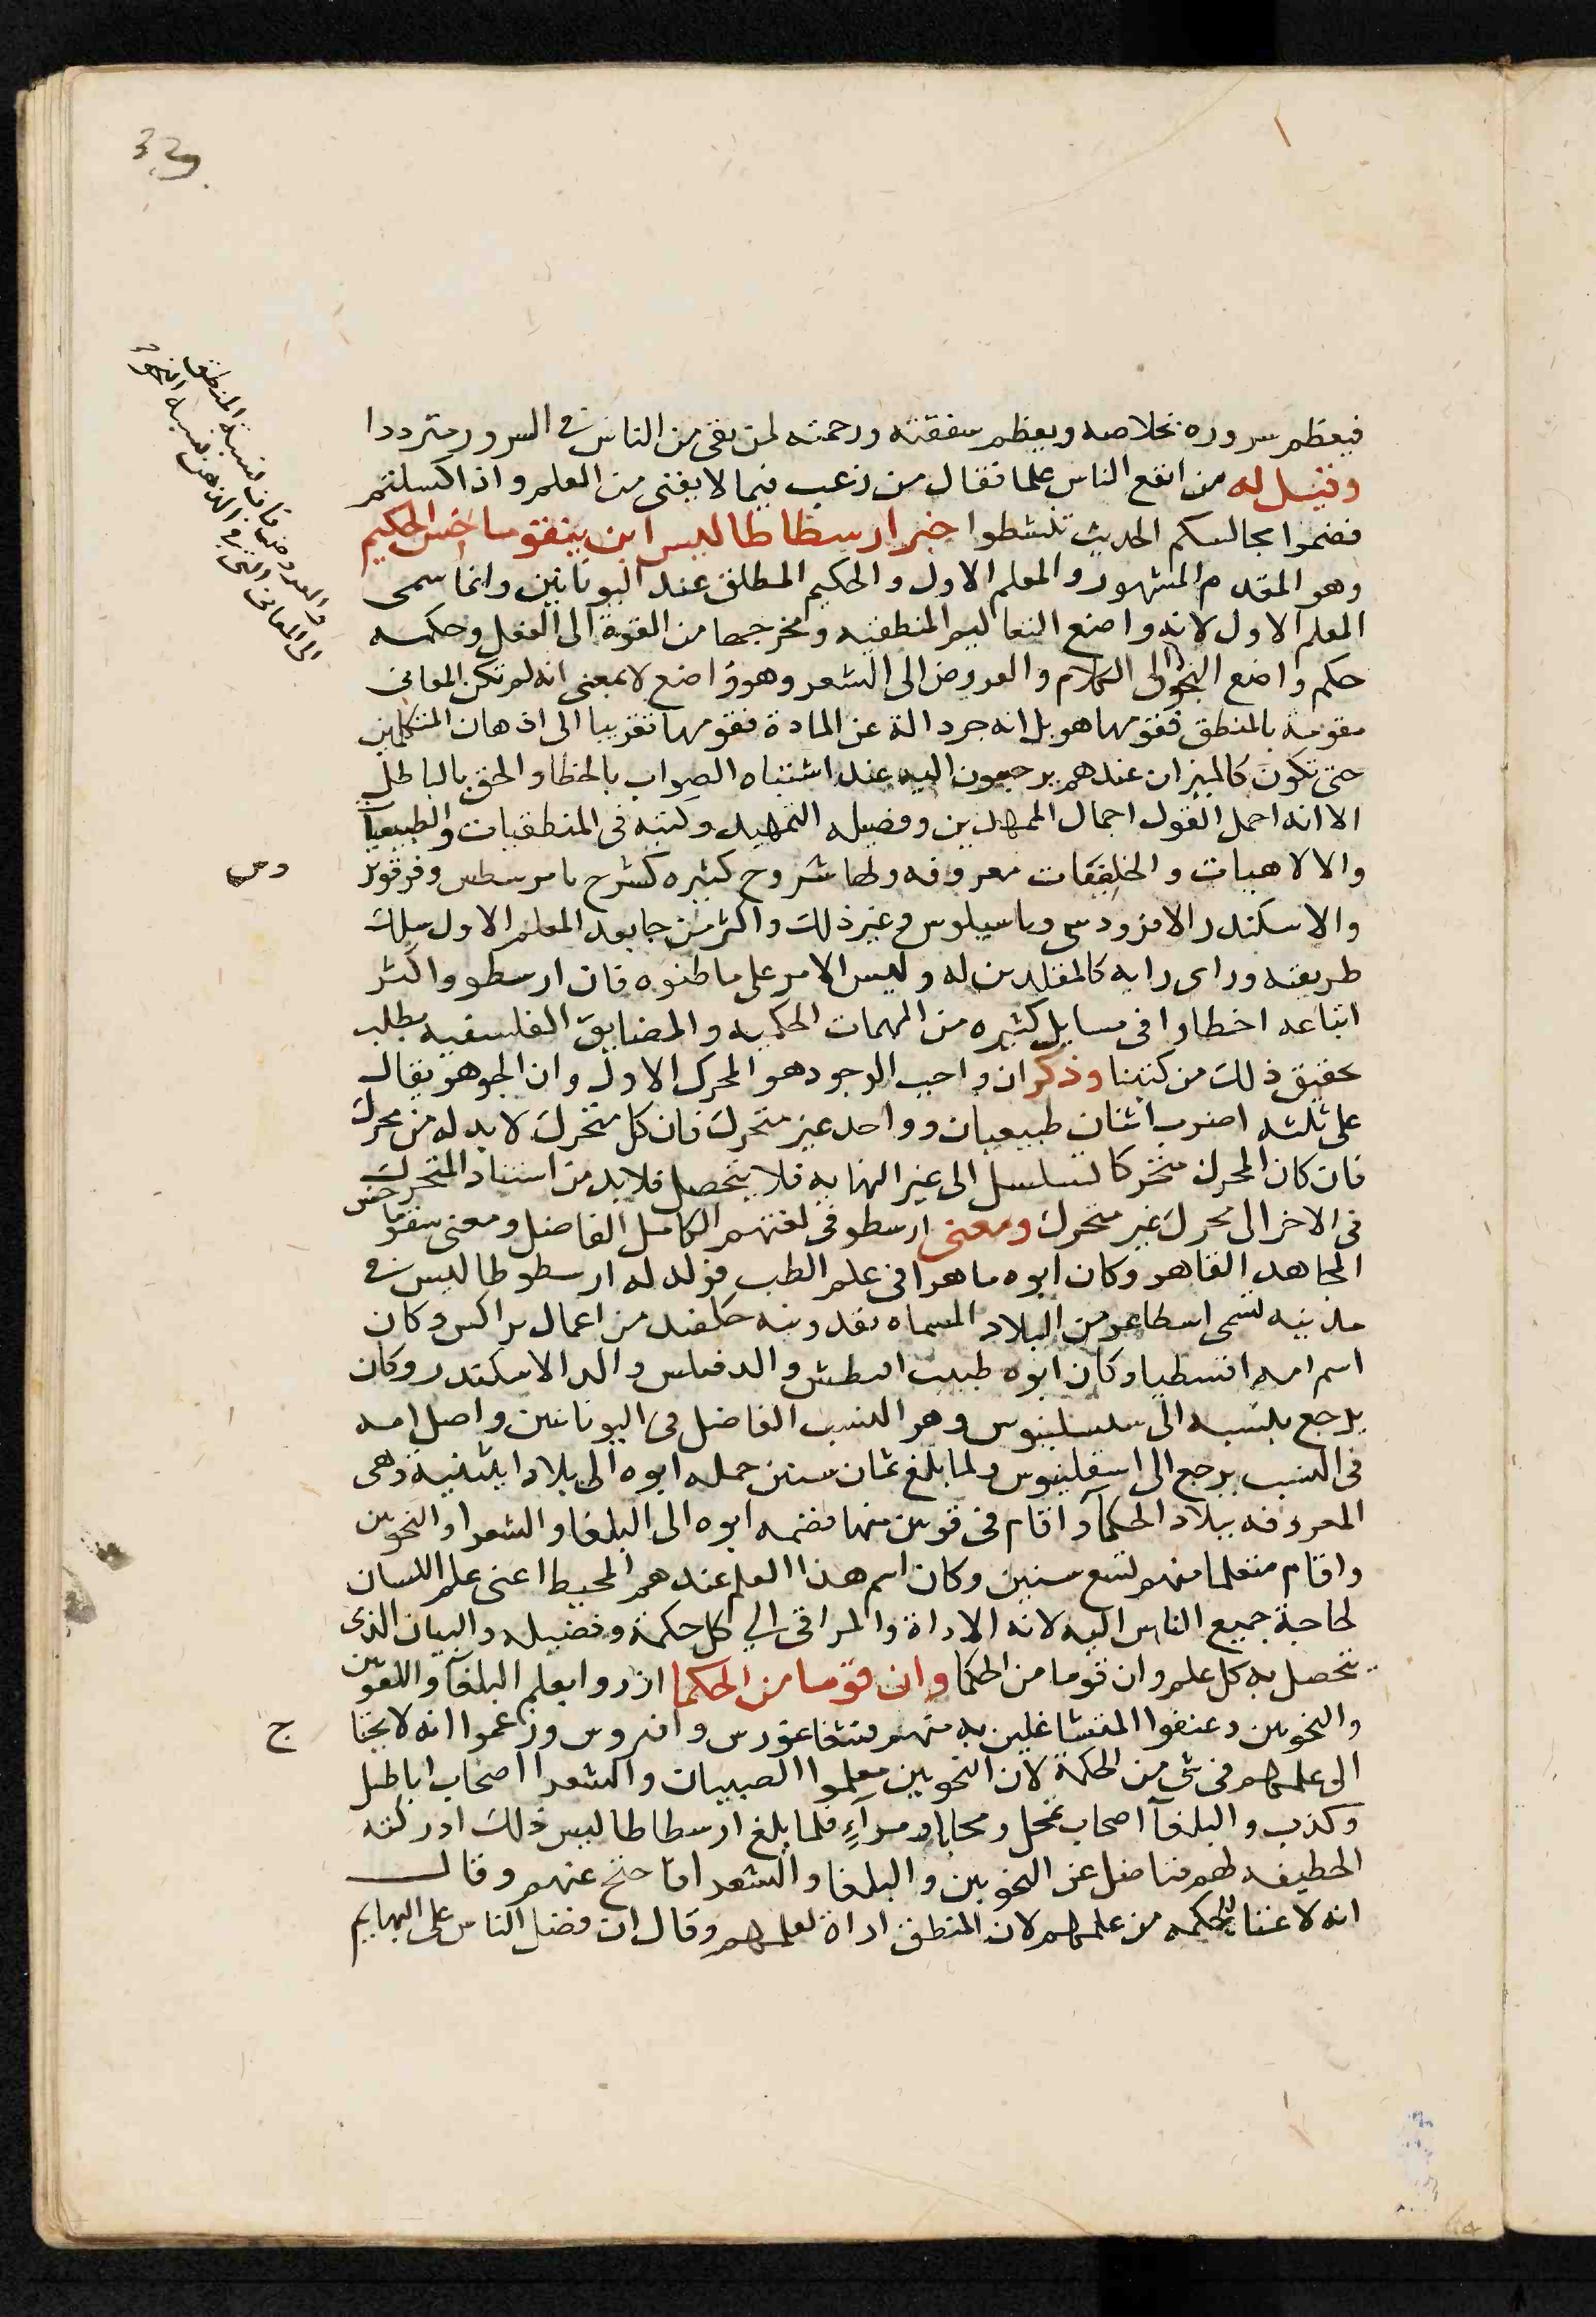 33
فيعظم سروره بخلاصه ويعظم شفقته ورحمته لمن بقى من الناس فى السرور مترددا
وقيل له من انفع الناس علما فقال من زغب فيما لا يفنى من العلم واذا كسلتم
فضموا مجالسكم الحديث تنشطوا خبر ارسطاطاليس ابن ينقوماخس الحكيم
وهو المقدم المشهور والمعلم الاول والحكيم المطلق عند اليونانيين وانما سمى
المعلم الاول لانه واضع التعاليم المنطقيه ومخرجها من القوة الى الفعل وحكمه
حكم واضع النحو الى الكلام والعروض الى الشعر وهو واضع لا بمعنى انه لم تكن المعانى
مقومة بالمنطق فقومها هو بل انه جرد الة عن المادة فقومها تقريبا الى اذهان المتكلمين
حتى تكون كالميزان عندهم يرجعون اليه عند اشتباه الصواب بالخطا والحق بالباطل
الا انه اجمل القول اجمال الممهدين وفضيله التمهيد وكتبه فى المنطقيات والطبيعيا
والالاهيات والخلقيات معروفه ولها شروح كثيره كشرح ثامرسطس وفرفور
والاسكندر الافزودسى وباسيلوس وغير ذلك واكثر من جا بعد المعلم الاول سلك
طريقته وراى رايه كالمقلدين له وليس الامر على ما ظنوه فان ارسطو واكثر
اتباعه اخطاوا فى مسايل كثيره من المهمات الحكميه والمضايق الفلسفيه يطلب
تحقيق ذلك من كتبنا وذكر ان واجب الوجود هو المحرك الاول وان الجوهر يقال
على ثلثه اضرب اثنان طبيعيان وواحد غير متحرك فان كل متحرك لا بد له من محرك
فان كان المحرك متحركا تسلسل الى غير النهايه فلا يتحصل فلا بد من استناد المتحرك
فى الاخر الى محرك غير متحرك ومعنى ارسطو فى لغتهم الكامل الفاضل ومعنى ينقوماخس
المجاهد القاهر وكان ابوه ماهرا فى علم الطب فولد له ارسطوطاليس فى
مدينه تسمى اسطاغر من البلاد المسماه
اسم امه افسطيا وكان ابوه طبيب والد الاسكندر وكان
يرجع بنسبه الى وهو النسب الفاضل فى اليونانيين واصل امه
فى النسب يرجع الى اسقلبيوس ولما بلغ ثمان سنين حمله ابوه الى بلاد ايثنية وهى
المعروفه ببلاد الحكمآ واقام فى قومين منها فضمه ابوه الى البلغا والشعرا والنحوين
واقام متعلما منهم تسع سنين وكان اسم هذا العلم عندهم المحيط اعنى علم اللسان
لحاجة جميع الناس اليه لانه الاداة والمراقى الى كل حكمة وفضيله والبيان الذى
يتحصل به كل علم وان قوما من الحكما وان قوما من الحكما ازروا بعلم البلغآ واللغوين
والنحوين وعنفوا المتشاغلين به منهم فيثاغورس وافروس وزعموا انه لا يحتا
ج
الى علمهم فى شى من الحكمة لان النحويين معلموا الصبيان والشعرا اصحاب اباطيل
وكذب والبلغآ اصحاب تمحل ومحاباه ومرآءٍ فلما بلغ ارسطاطاليس ذلك ادركته
الحطيفه لهم فناضل عن النحويين والبلغا والشعرا فاحتج عنهم وقال
انه لا غنا للحكمه من علمهم لان المنطق اداة لعلمهم وقال ان فضل الناس على البهايم
والعروض فان نسبة المنطق
الى المعانى التى فى الذهن نسبه النحو